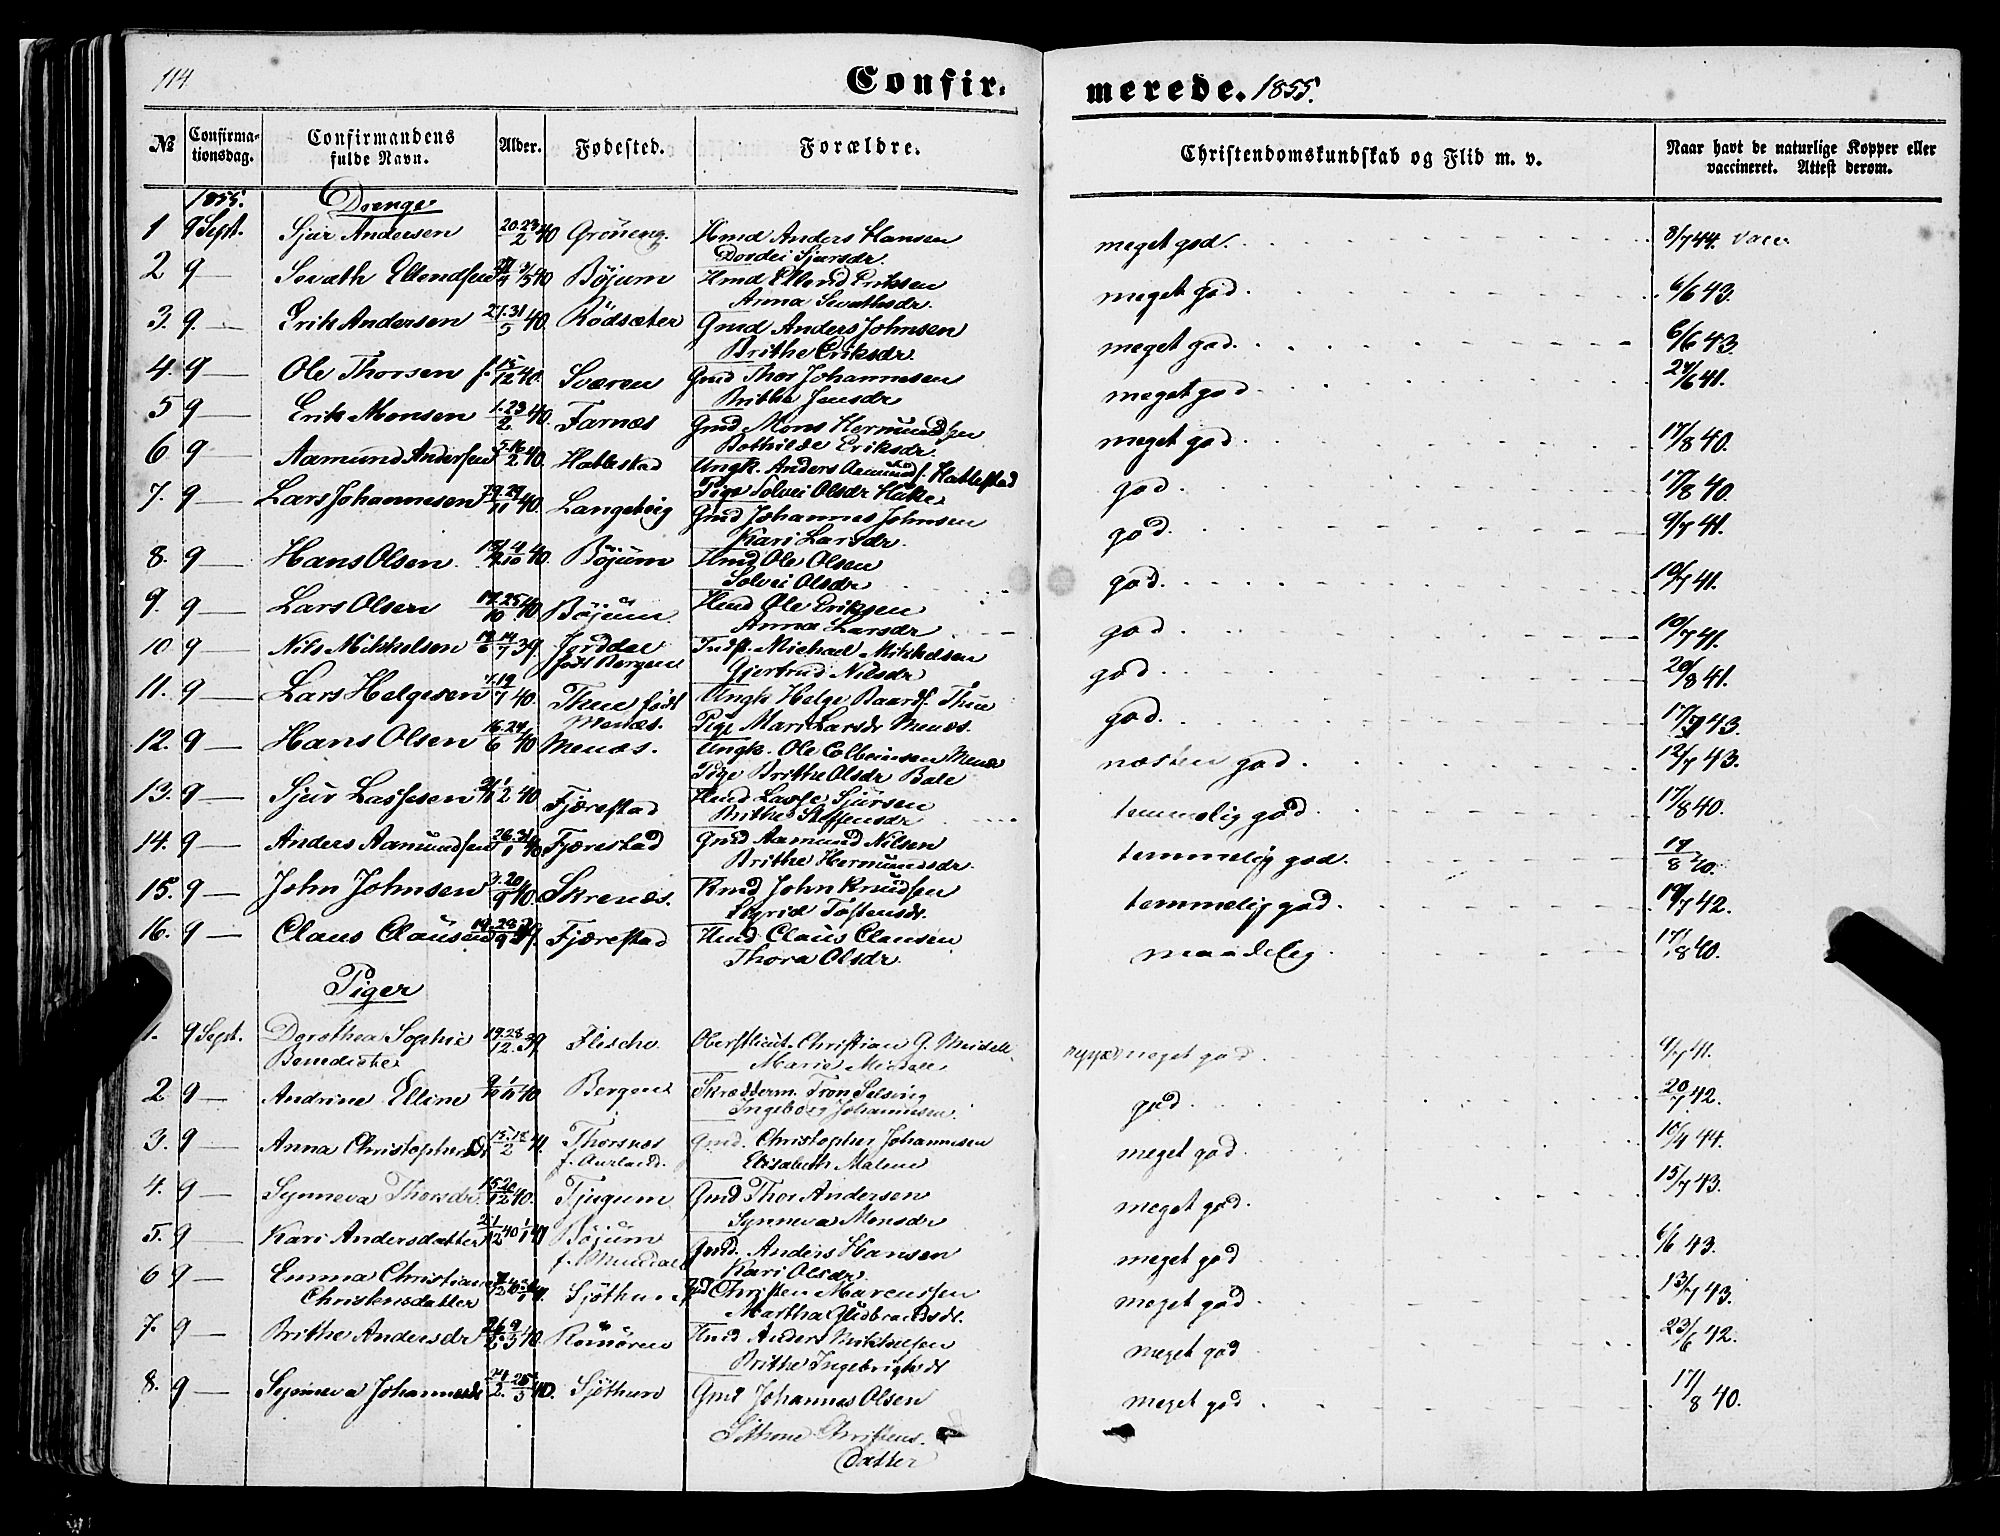 114
Confir: merede. 1855.
№ Confirmationsdag. Confirmandens fulde Navn. Alder. Fødested. Forældre. Christendomskundskab og Flid m. v. Naar havt de naturlige Kopper eller vaccineret. Attest derom.
1855. Drenge
1 9 Sept. Sjur Andersen 20.23/2 40 Gröneng Hmd Anders Hansen meget god. 8/7 44. Vacc
Dordei Sjursdr.
2 9 — Sevath Ellendsen Böjum Hmd Ellend Eriksen meget god. 6/6 43.
Anna Sevathsdr.
3. 9. — Erik Andersen 21.31/5 40. Rödsæter Gmd Anders Johnsen meget god. 6/6 43.
Brithe Eriksdr.
4. 9 — Ole Thorsen f. 15/12 40. Sværen Gmd Thor Johannesen meget god 24/6 41.
Brithe Jensdr
5 9 — Erik Monsen 1.23/2 40. Farnæs Gmd Mons Hermundsen meget god. 17/8 40.
Bothilde Eriksdr.
6 9 — Aamund Andersen Hatlestad Ungk. Anders Aamunds. Hatlestad god 17/8 40.
Pige Solvei Olsdr
7. 9 — Lars Johannesen 19.29/11 40. Langeteig Gmd Johannes Johnsen god. 9/7 41.
Kari Larsdr.
8. 9 — Hans Olsen Böjum Hmd Ole Olsen god. 10/7 41.
Solvei Olsdr
9. 9 — Lars Olsen 17.25/10 40 Böjum. Hmd Ole Eriksen god 10/7 41.
Anna Larsdr
10 9 — Nils Mikkelsen 39. Jorddal Indst. Michael Mikkelsen god 20/8 41.
födt Bergen Gjertrud Nilsdr
11. 9 — Lars Helgesen 7.19/7 40. Thue födt Ungk Helge Baards. Thue god. 17/7 43.
Menæs. Pige Mari Larsdr Menæs.
12. 9 — Hans Olsen 16.24/6 40 Menæs. Ungk. Ole Menæs næsten god. 12/7 43.
Pige Brithe Olsdr Bale
13. 9 — Sjur Lassesen 40 Fjærestad Hmd Lasse Sjursen temmelig god 17/8 40.
Brithe Steffensdr.
14. 9 — Anders Aamundsen 26.31/1 40 Fjærestad Gmd Aamund Nilsen temmelig god. 17/8 40.
Brithe Hermundsdr.
15. 9 — John Johnsen 3.20/9 40. Skrenæs. Hmd John Knudsen temmelig god. 19/7 42.
Sigrid Tostensdr.
16. 9 — Claus Clausen 39. Fjærestad Hmd Claus Clausen maadelig. 17/8 40.
Thora Olsdr.
Piger
1. 9 Sept. Dorothea Sophie 19.28/12. 39 Flesche Oberstlieut. Christian G. Meidell meget god. 9/7 41.
Benedicte Marie Meidell
2 9 — Andrine Elline 40 Bergen Skrædderm. Tron Selsing god. 20/7 42.
Ingeborg Johannesen.
3. 9 — Anna Christophersdr 15.18/2 41. Thorsnæs Gmd. Christopher Johannesen meget god 10/4 44.
f. Aurland. Elisabeth Malene
4. 9 — Synneva Thorsdr 15.20/12 40. Tjugum Gmd Thor Andersen meget god 15/7 43.
Synneva Monsdr
5. 9 — Kari Andersdatter Böjum Gmd. Anders Hansen meget god 6/6 43.
f. Mundal Kari Olsdr
6 9 — Emma Christiane Sjöthun Christen Marcussen meget god 13/7 43.
Christensdatter Martha Gudbrandsdr.
7. 9 — Brithe Andersdr 40. Römören Hmd Anders meget god 23/6 42.
Brithe Ingebrigtsdr
8. 9 — Synneva Johannesdr 40. Sjöthun Gmd Johannes Olsen meget god 17/8 40.
Christens.
datter